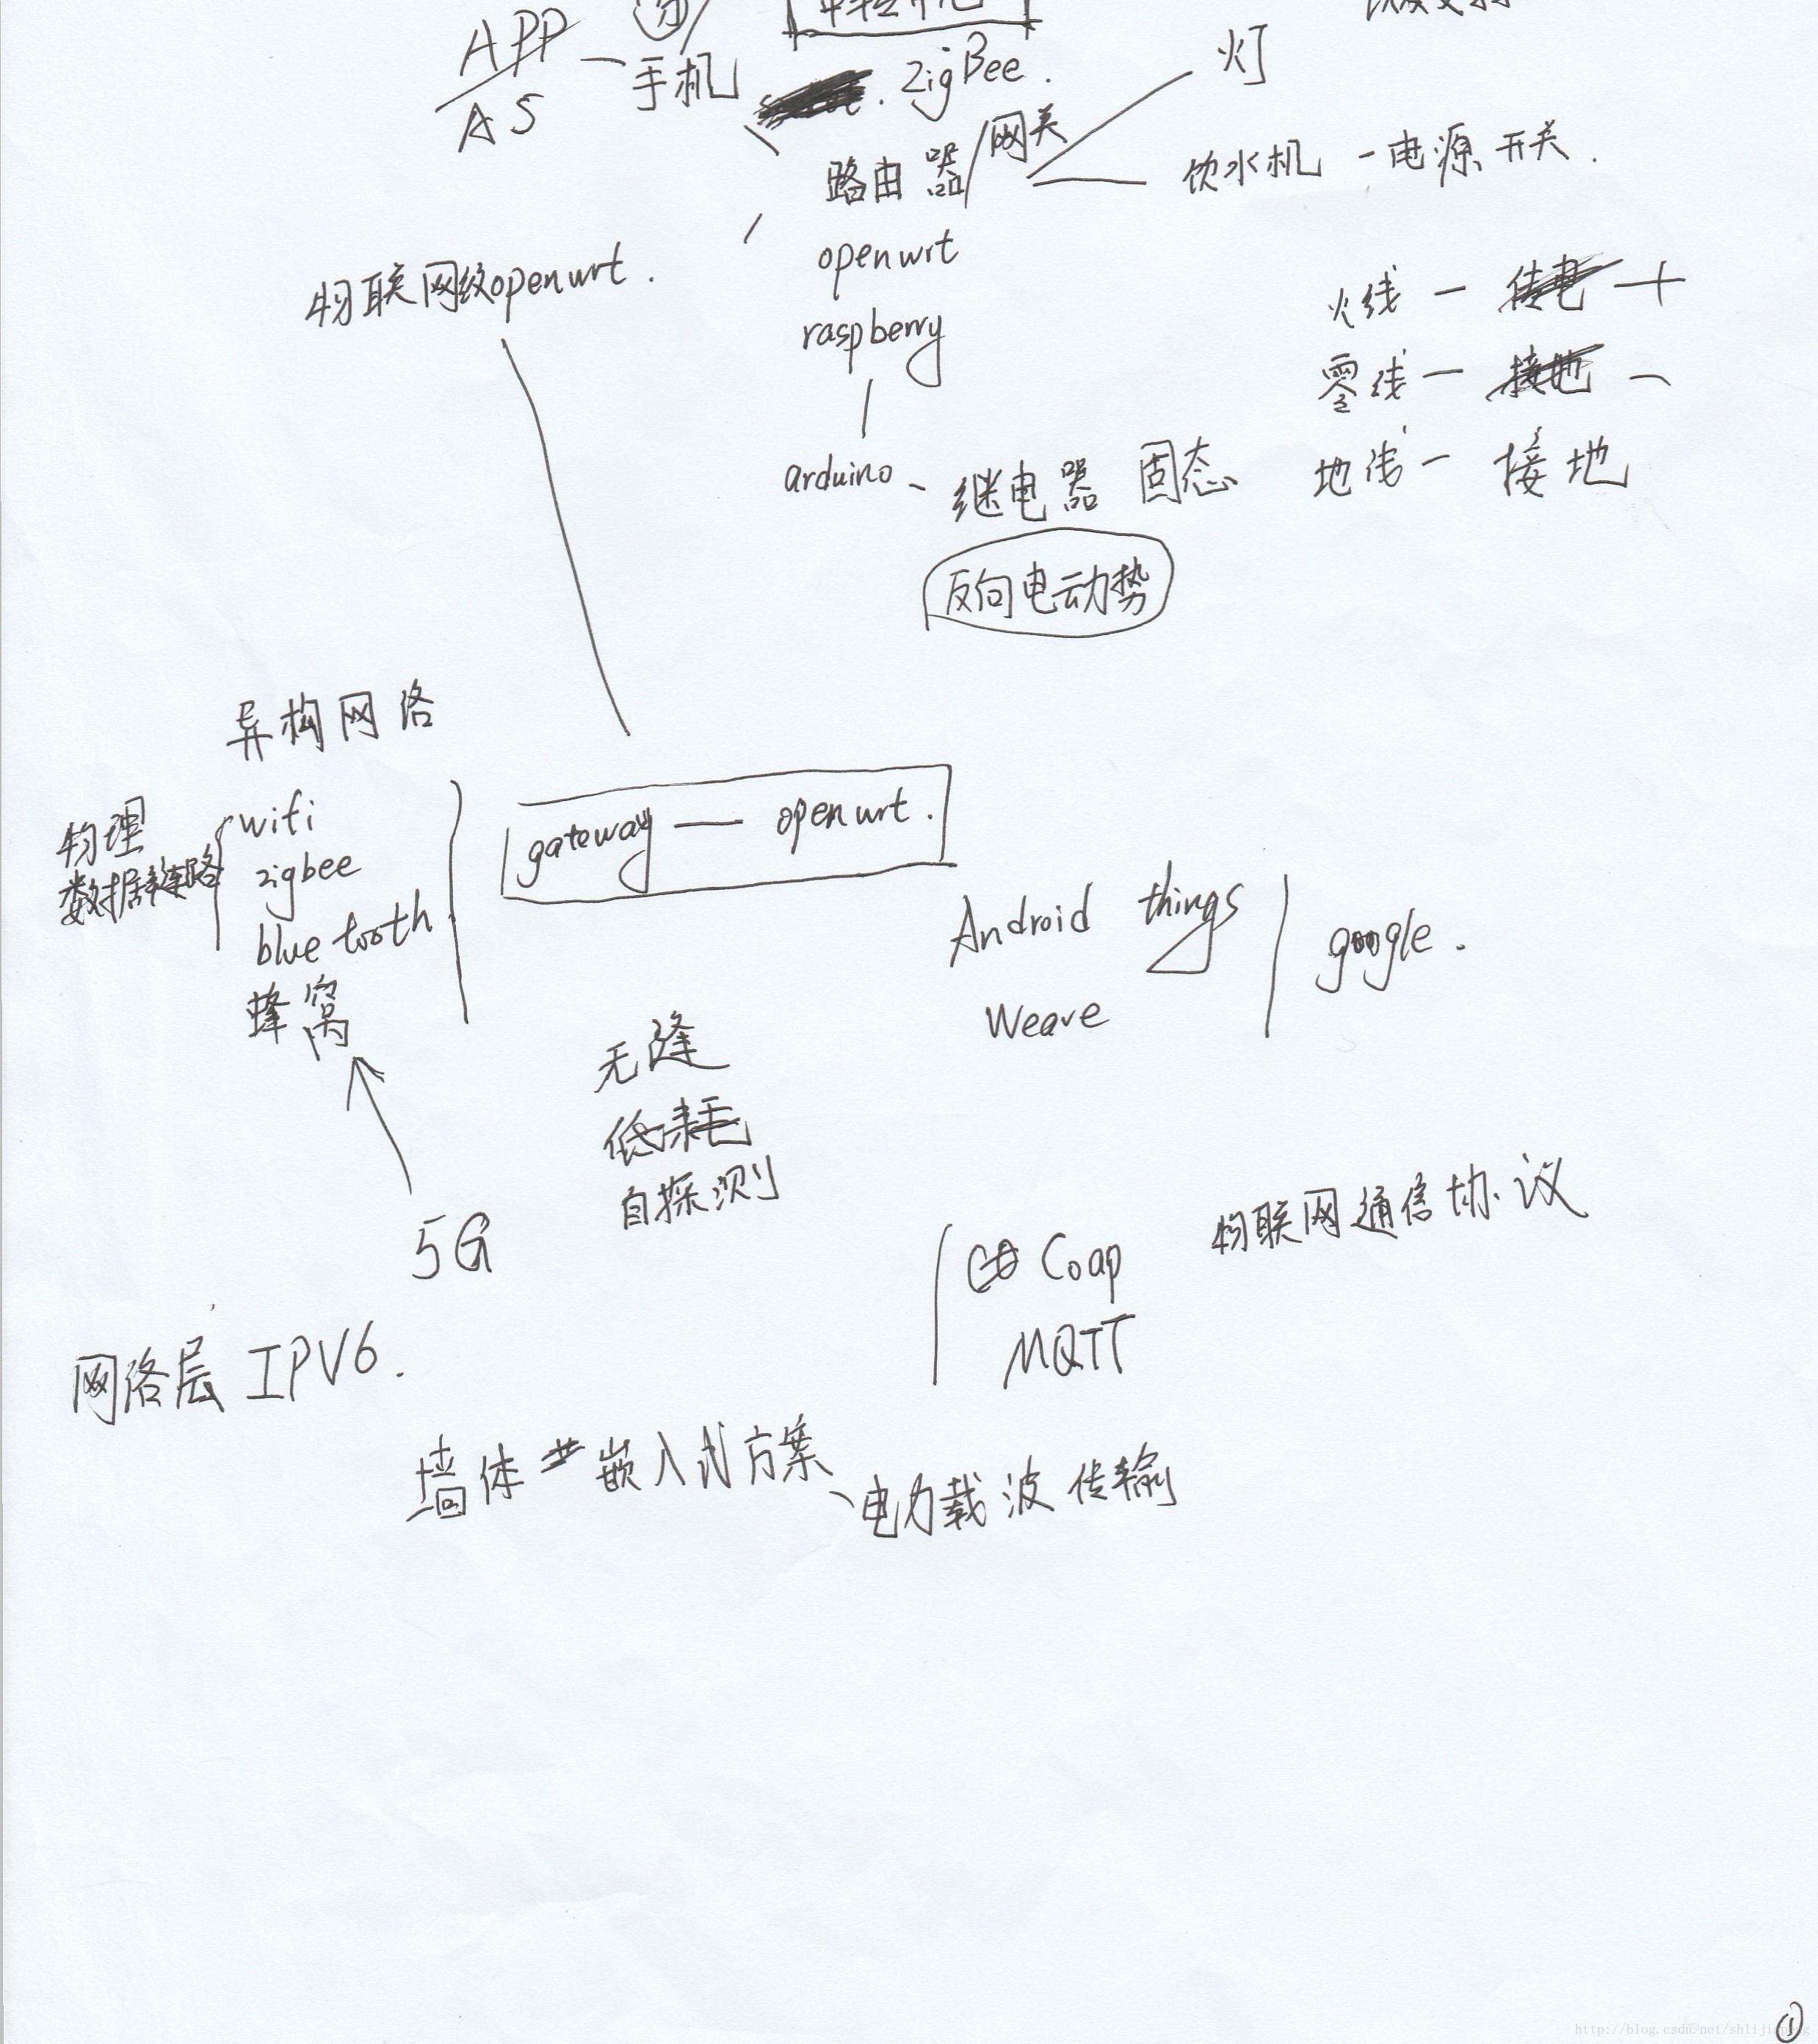 APP — 手机
AS
zigBee.
灯
路由器/网关
饮水机 - 电源开关.
openwrt
物联网级openwrt.
raspberry
火线 — +
零线 — —
arduino - 继电器 固态
地线 — 接地
反向电动势
异构网络
gateway — openwrt.
物理
数据链路
wifi
zigbee
blue tooth
蜂窝
Android things
google.
Weave
无缝
低耗
自探测
5G
物联网通信协议
Coap
MQTT
网络层 IPV6.
墙体 嵌入式方案、电力载波传输
http://blog.csdn.net/shlijinpeng
①